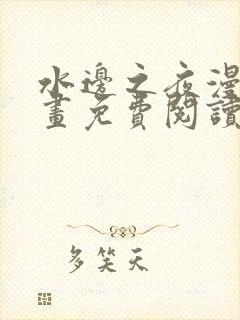 水邊之夜漫
畫免費閱讀
多笑天